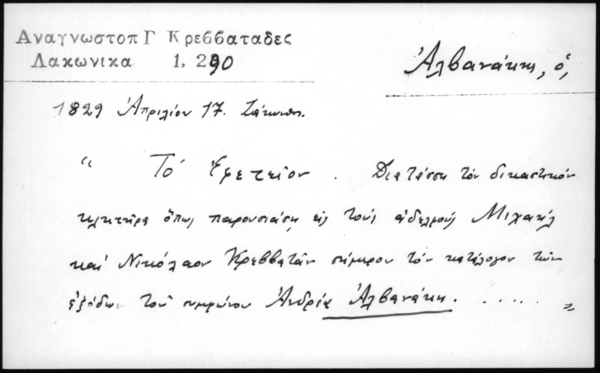 Αναγνωστοπ Γ Κρεββαταδες
Λακωνικα 1, 290
Ἀλβανάκης, ὁ,
1829 Ἀπριλίου 17.
" Τό Ἐφετεῖον. Διατάσσει τόν δικαστικόν
κλητῆρα ὅπως παρουσιάσῃ εἰς τούς ἀδελφούς Μιχαήλ
καί Νικόλαον Κρεββατᾶν σήμερον τόν κατάλογον τῶν
ἐξόδων τοῦ συμφώνου Ἀνδρέα Ἀλβανάκη. ..... "